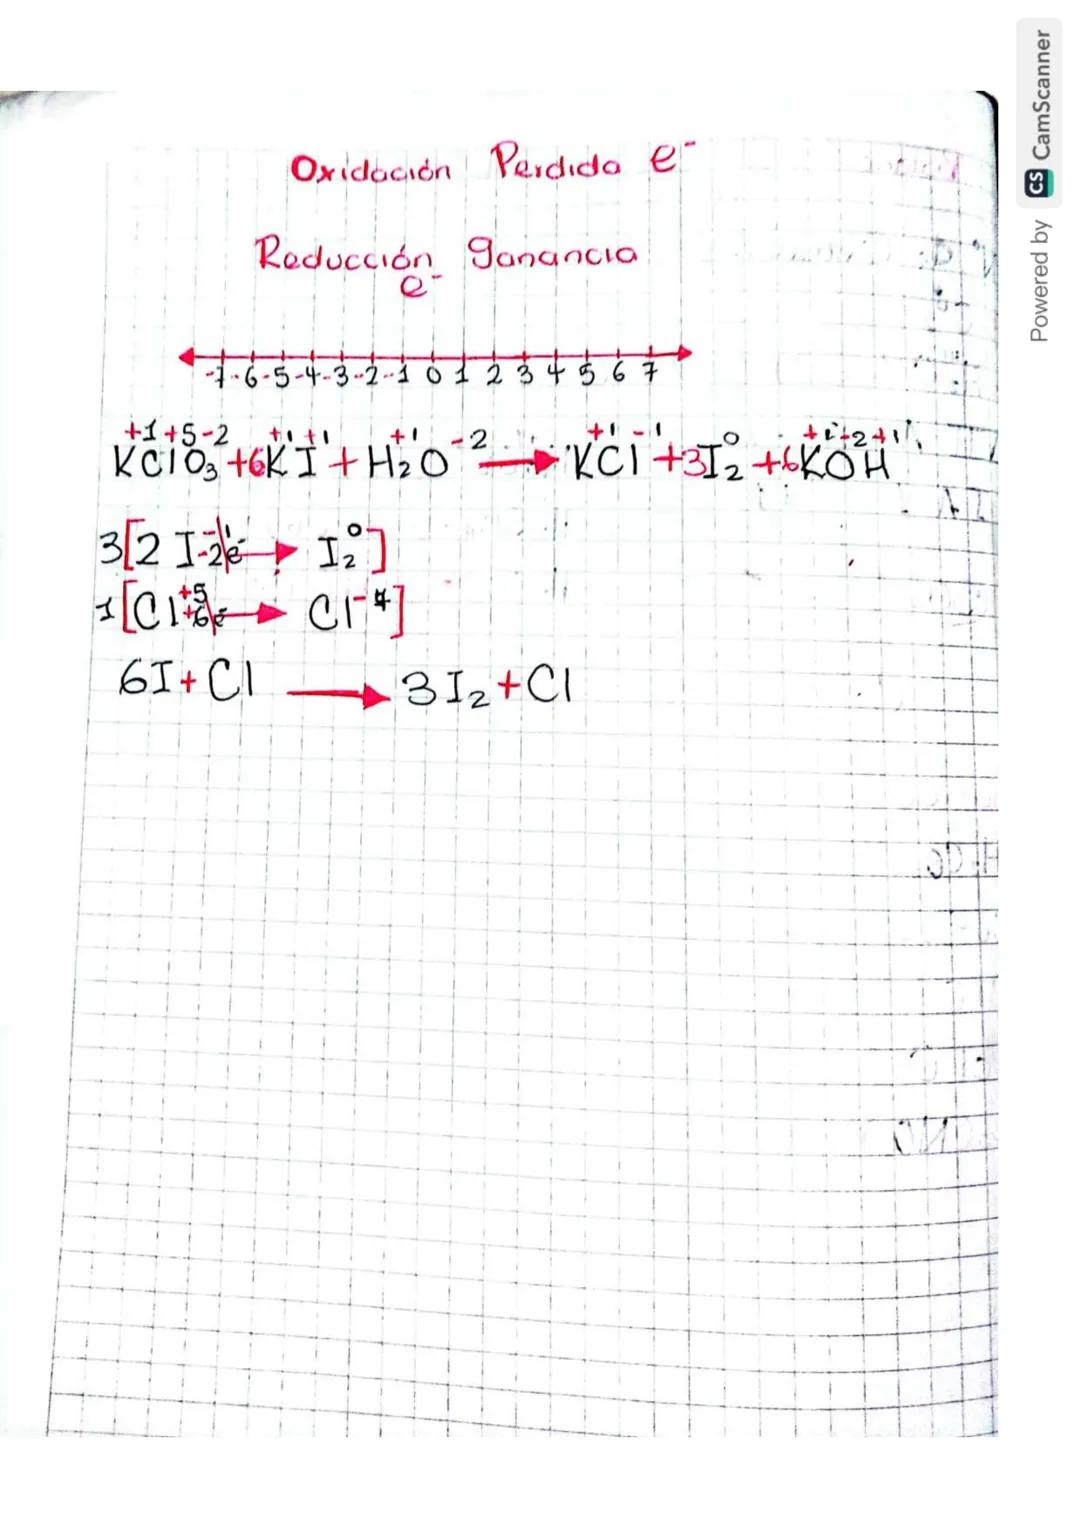 Oxidación Perdida e⁻
Reducción ganancia
e⁻
-7-6-5-4-3-2-1 0 1 2 3 4 5 6 7
+1 +5 -2 +1 +1 +1 -2 +1 -1 0 +1 -2 +1
KClO₃ +6KI + H₂O → KCl +3I₂ +6KOH
3[2 I⁻¹ -2e⁻ → I₂⁰]
1[Cl⁺⁵ +6e⁻ → Cl⁻¹]
6I + Cl → 3I₂ + Cl
Powered by CS CamScanner